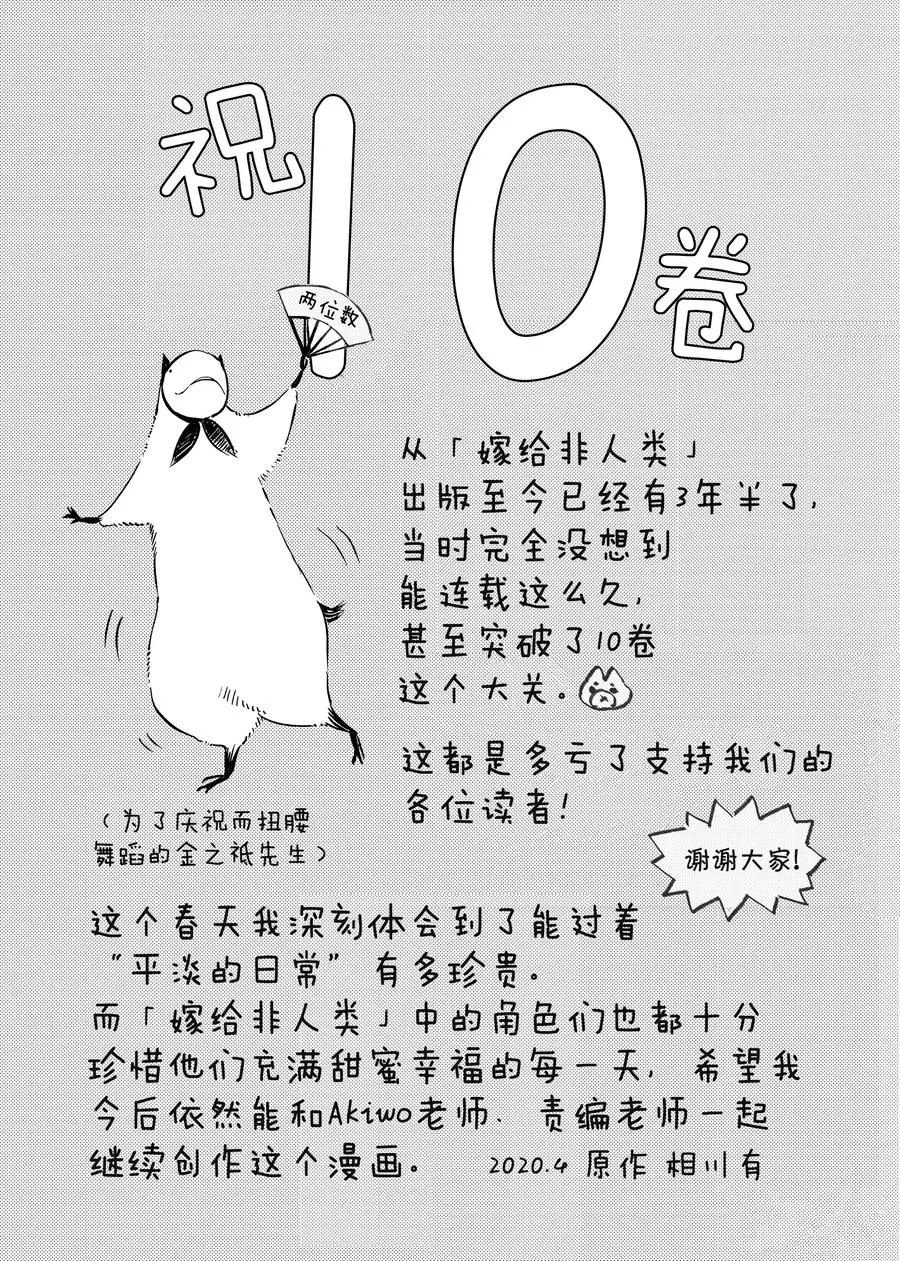 祝10卷
两位数
从「嫁给非人类」
出版至今已经有3年半了,
当时完全没想到
能连载这么久,
甚至突破了10卷
这个大关。
这都是多亏了支持我们的
各位读者!
(为了庆祝而扭腰
舞蹈的金之祗先生)
谢谢大家!
这个春天我深刻体会到了能过着
“平淡的日常”有多珍贵。
而「嫁给非人类」中的角色们也都十分
珍惜他们充满甜蜜幸福的每一天,希望我
今后依然能和Akiwo老师、责编老师一起
继续创作这个漫画。
2020.4 原作 相川有